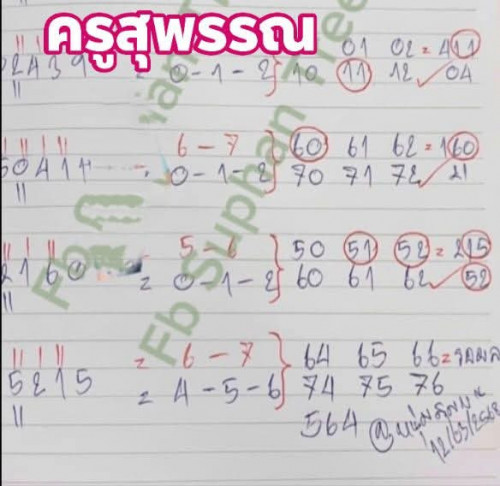 ครูสุพรรณ
01 02 = 411
02439 = 0-1-2 10 11 12 04
6-7 60 61 62 = 160
50414 = 0-1-2 70 71 72 21
5-6 50 51 52 = 215
2160 = 0-1-2 60 61 62 52
= 6-7 64 65 66 = รอผล
5215 = 4-5-6 74 75 76
564
12/03/2568
Fb Suphan Tree